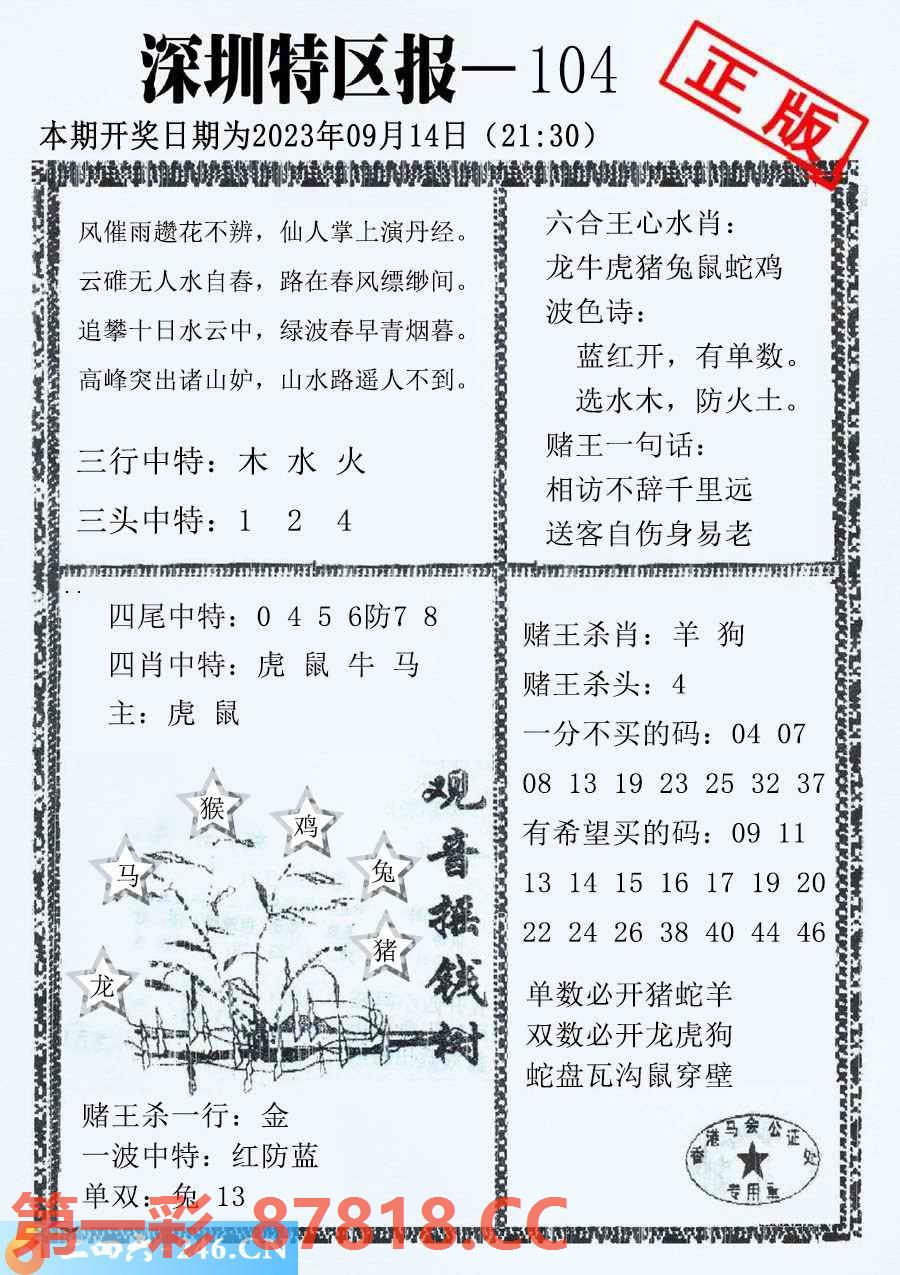 深圳特区报—104
正版
本期开奖日期为2023年09月14日（21:30）
风催雨趱花不辨，仙人掌上演丹经。
云碓无人水自舂，路在春风缥缈间。
追攀十日水云中，绿波春早青烟暮。
高峰突出诸山妒，山水路遥人不到。
三行中特：木 水 火
三头中特：1 2 4
六合王心水肖：
龙牛虎猪兔鼠蛇鸡
波色诗：
蓝红开，有单数。
选水木，防火土。
赌王一句话：
相访不辞千里远
送客自伤身易老
四尾中特：0 4 5 6防7 8
四肖中特：虎 鼠 牛 马
主：虎 鼠
观音摇钱树
猴
鸡
马
兔
猪
龙
赌王杀一行：金
一波中特：红防蓝
单双：兔 13
赌王杀肖：羊 狗
赌王杀头：4
一分不买的码：04 07
08 13 19 23 25 32 37
有希望买的码：09 11
13 14 15 16 17 19 20
22 24 26 38 40 44 46
单数必开猪蛇羊
双数必开龙虎狗
蛇盘瓦沟鼠穿壁
香港马会公证处
专用章
第一彩 87818.CC
246.CN